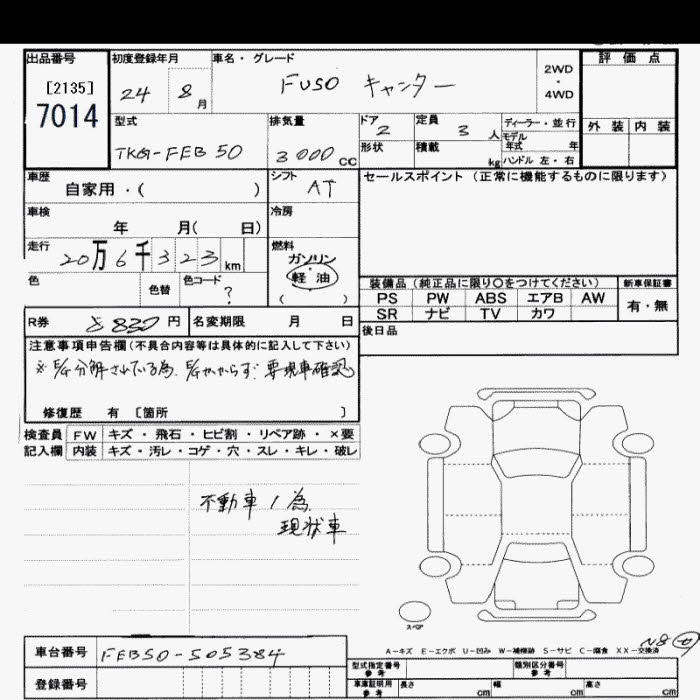 出品番号
[2135]
7014
初度登録年月
24 8 月
車名・グレード
FUSO キャンター
2WD
・
4WD
評価点
外装 内装
型式
TKG-FEB50
排気量
3000 CC
ドア
2
形状
定員
3 人
積載
kg
ディーラー・並行
モデル
年式 年
ハンドル 左・右
車歴
自家用・( )
シフト
AT
セールスポイント (正常に機能するものに限ります)
車検
年 月( 日)
冷房
走行
20万6千323 km
燃料
ガソリン
軽油
( )
色
色替
色コード
?
装備品(純正品に限り○をつけてください)
新車保証書
PS PW ABS エアB AW
SR ナビ TV カワ
有・無
R券 8830 円
名変期限 月 日
後日品
注意事項申告欄(不具合内容等は具体的に記入して下さい)
※ E/G分解されている為、E/Gかからず 要現車確認
修復歴 有 [箇所 ]
検査員
記入欄
FW キズ・飛石・ヒビ割・リペア跡・×要
内装 キズ・汚レ・コゲ・穴・スレ・キレ・破レ
不動車ノ為
現状車
スペア
A-キズ E-エクボ U-凹み W-補修跡 S-サビ C-腐食 XX-交換済
車台番号 FEB50-505384
登録番号
型式指定番号
参考
類別区分番号
参考
車庫証明用
参考
長さ cm
幅 cm
高さ cm